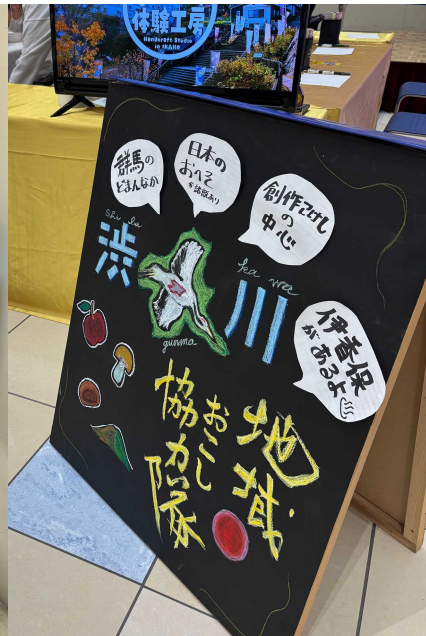 体験工房
Handcraft Studio
in IKAHO
群馬の
どまんなか
日本の
おへそ
※諸説あり
創作こけし
の
中心
伊香保
が
あるよ♨
Shi bu
渋
ka wa
川
gunma
地域
おこし
協力隊